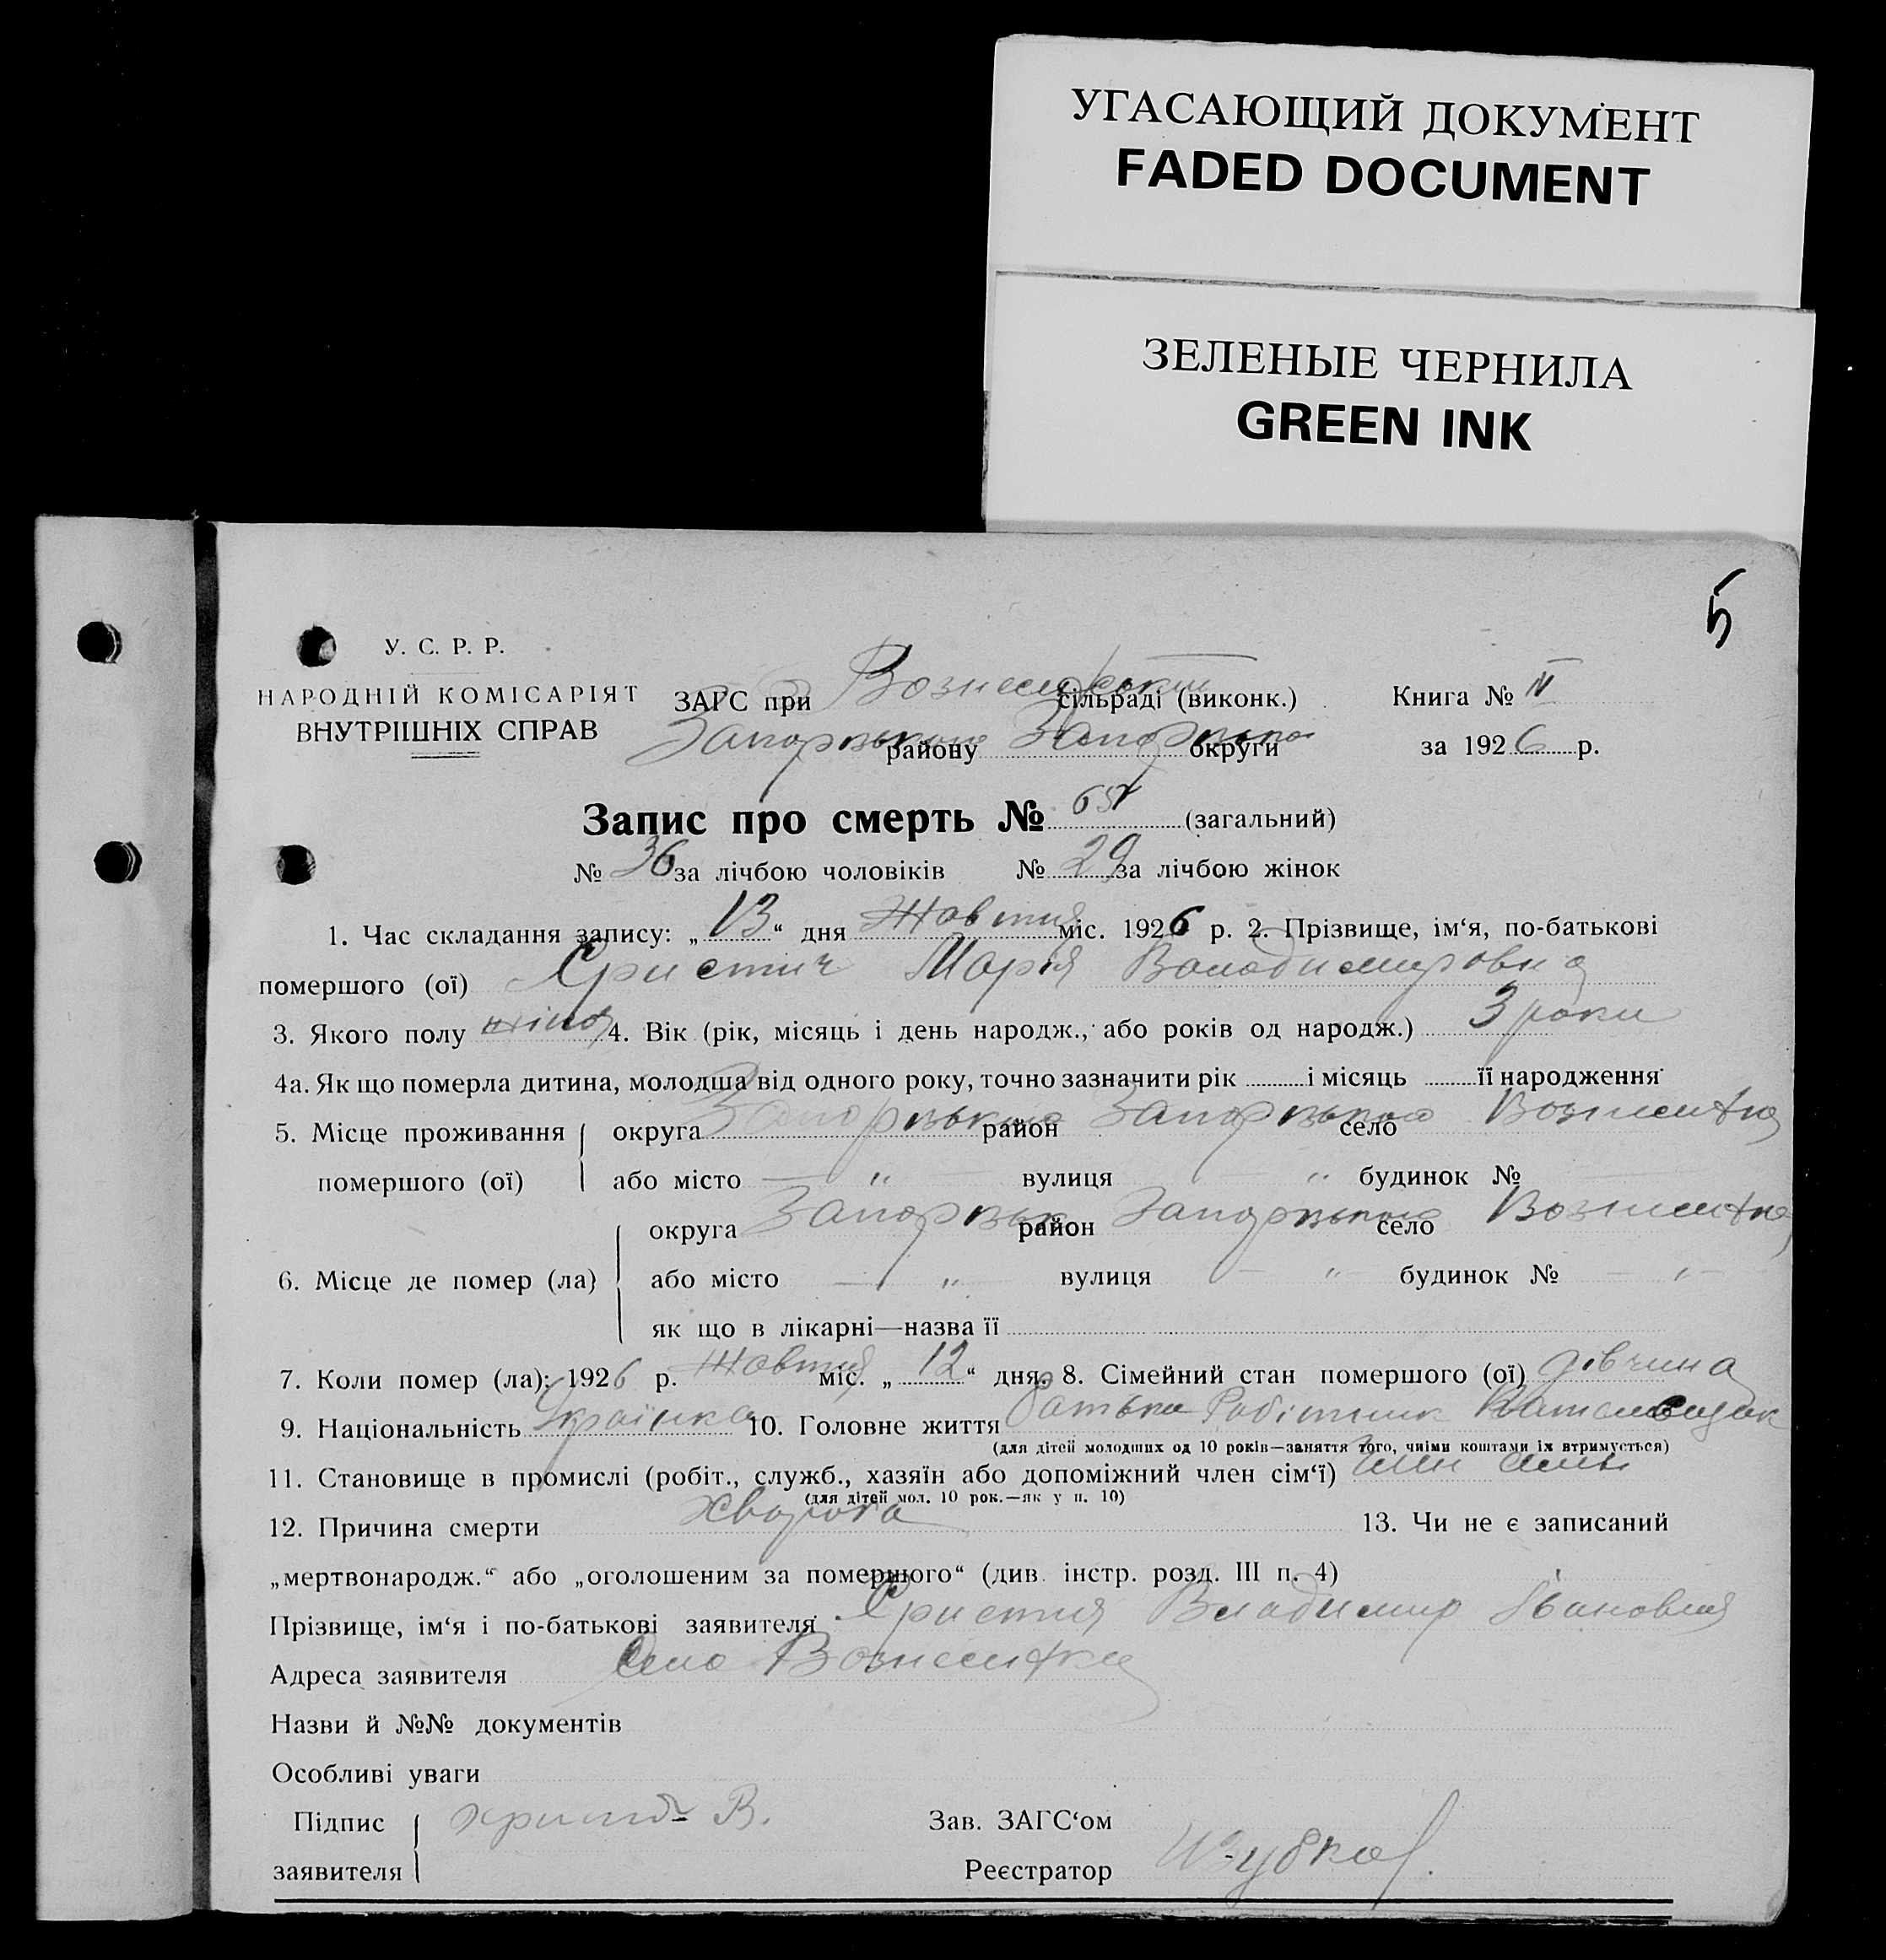 УГАСАЮЩИЙ ДОКУМЕНТ
FADED DOCUMENT
ЗЕЛЕНЫЕ ЧЕРНИЛА
GREEN INK
5
У. С. Р. Р.
НАРОДНІЙ КОМІСАРІЯТ
ВНУТРІШНІХ СПРАВ
ЗАГС при сільраді (виконк.) Книга № IV
району округи за 1926 р.
Запис про смерть № 65 (загальний)
№ 36 за лічбою чоловіків № 29 за лічбою жінок
1. Час складання запису: „13“ дня Жовтня міс. 1926 р. 2. Прізвище, ім‘я, по-батькові
помершого (ої) Марія Володимировна
3. Якого полу 4. Вік (рік, місяць і день народж., або років од народж.) 3 роки
4а. Як що померла дитина, молодша від одного року, точно зазначити рік і місяць її народження
5. Місце проживання помершого (ої) округа Запорізька район Запорізького село Вознесенка
або місто — „ — вулиця — „ будинок № —
6. Місце де помер (ла) округа Запорізьк район Запорізького село Вознесенка
або місто — „ вулиця — „ будинок № — „ —
як що в лікарні—назва її
7. Коли помер (ла): 1926 р. Жовтня міс. „12“ дня. 8. Сімейний стан помершого (ої) дівчина
9. Національність Українка 10. Головне життя батька Робітник
(для дітей молодших од 10 років—заняття того, чиїми коштами їх втримується)
11. Становище в промислі (робіт., служб., хазяїн або допоміжний член сім‘ї) член сімьї
(для дітей мол. 10 рок.—як у п. 10)
12. Причина смерти хвороба 13. Чи не є записаний
„мертвонародж.“ або „оголошеним за помершого“ (див. інстр. розд. III п. 4)
Прізвище, ім‘я і по-батькові заявителя Владимир Іванович
Адреса заявителя Село Вознесенка
Назви й №№ документів
Особливі уваги
Підпис заявителя В. Зав. ЗАГС‘ом
Реєстратор